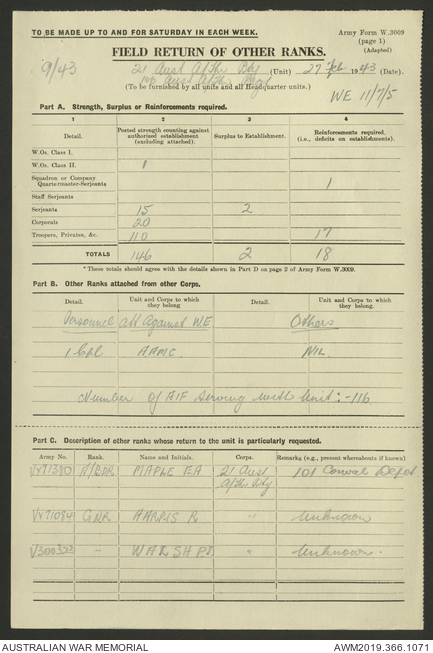 TO BE MADE UP TO AND FOR SATURDAY IN EACH WEEK.
Army Form W.3009
(page 1)
(Adapted)
FIELD RETURN OF OTHER RANKS.
9/43
21 Aust A/Tk Bty (Unit) 27 Feb 1943 (Date).
Aust A/Tk Regt
(To be furnished by all units and all Headquarter units.)
WE 11/7/5
Part A. Strength, Surplus or Reinforcements required.
1 2 3 4
Detail. Posted strength counting against authorized establishment (excluding attached). Surplus to Establishment. Reinforcements required. (i.e., deficits on establishments).
W.Os. Class I.
W.Os. Class II. 1
Squadron or Company Quartermaster-Serjeants 1
Staff Serjeants
Serjeants 15 2
Corporals 20
Troopers, Privates, &c. 110 17
TOTALS 146 2 18
* These totals should agree with the details shown in Part D on page 2 of Army Form W.3009.
Part B. Other Ranks attached from other Corps.
Detail. Unit and Corps to which they belong Detail. Unit and Corps to which they belong.
Personnel att Against WE Others
1 Cpl AAMC. NIL.
Number of AIF serving with Unit :- 116
Part C. Description of other ranks whose return to the unit is particularly requested.
Army No. Rank. Name and Initials. Corps. Remarks (e.g., present whereabouts if known)
VX71380 A/BDR MAPLE EA 21 Aust A/Tk Bty 101 Conval Depot
VX71084 GNR HARRIS R " Unknown
V300323 " WALSH PJ " Unknown.
AUSTRALIAN WAR MEMORIAL
AWM2019.366.1071